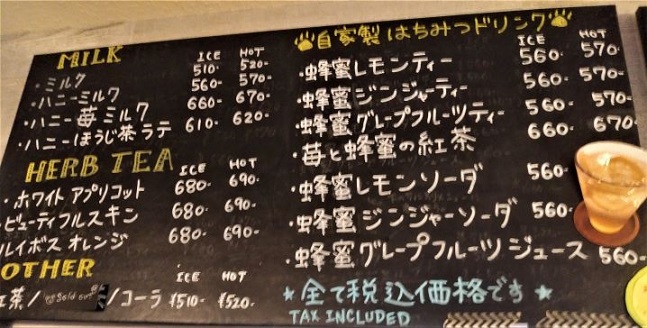 MILK ICE HOT
・ミルク 510- 520-
・ハニーミルク 560- 570-
・ハニー苺ミルク 660- 670-
・ハニーほうじ茶ラテ 610- 620-
HERB TEA ICE HOT
・ホワイトアプリコット 680- 690-
・ビューティフルスキン 680- 690-
ルイボスオレンジ 680- 690-
OTHER ICE HOT
紅茶/ sold out /コーラ ¥510- ¥520-
自家製はちみつドリンク
ICE HOT
・蜂蜜レモンティー 560- 570-
・蜂蜜ジンジャーティー 560- 570-
・蜂蜜グレープフルーツティー 560- 570-
・苺と蜂蜜の紅茶 660- 670-
・蜂蜜レモンソーダ 560-
・蜂蜜ジンジャーソーダ 560-
・蜂蜜グレープフルーツジュース 560-
★全て税込価格です★
TAX INCLUDED